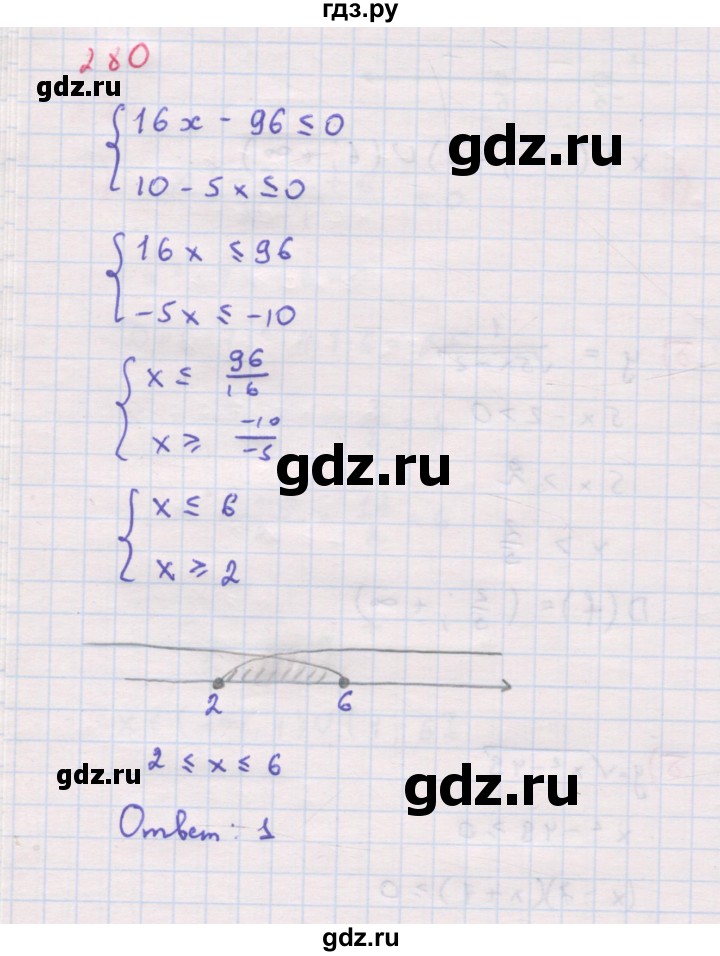 гдз.ру
280
gdz.ru
16x - 96 ≤ 0
gdz.ru
10 - 5x ≤ 0
16x ≤ 96
-5x ≤ -10
x ≤ 96/16
x ≥ -10/-5
gdz.ru
x ≤ 6
x ≥ 2
2 6
2 ≤ x ≤ 6
gdz.ru
gdz.ru
Ответ: 1
gdz.ru